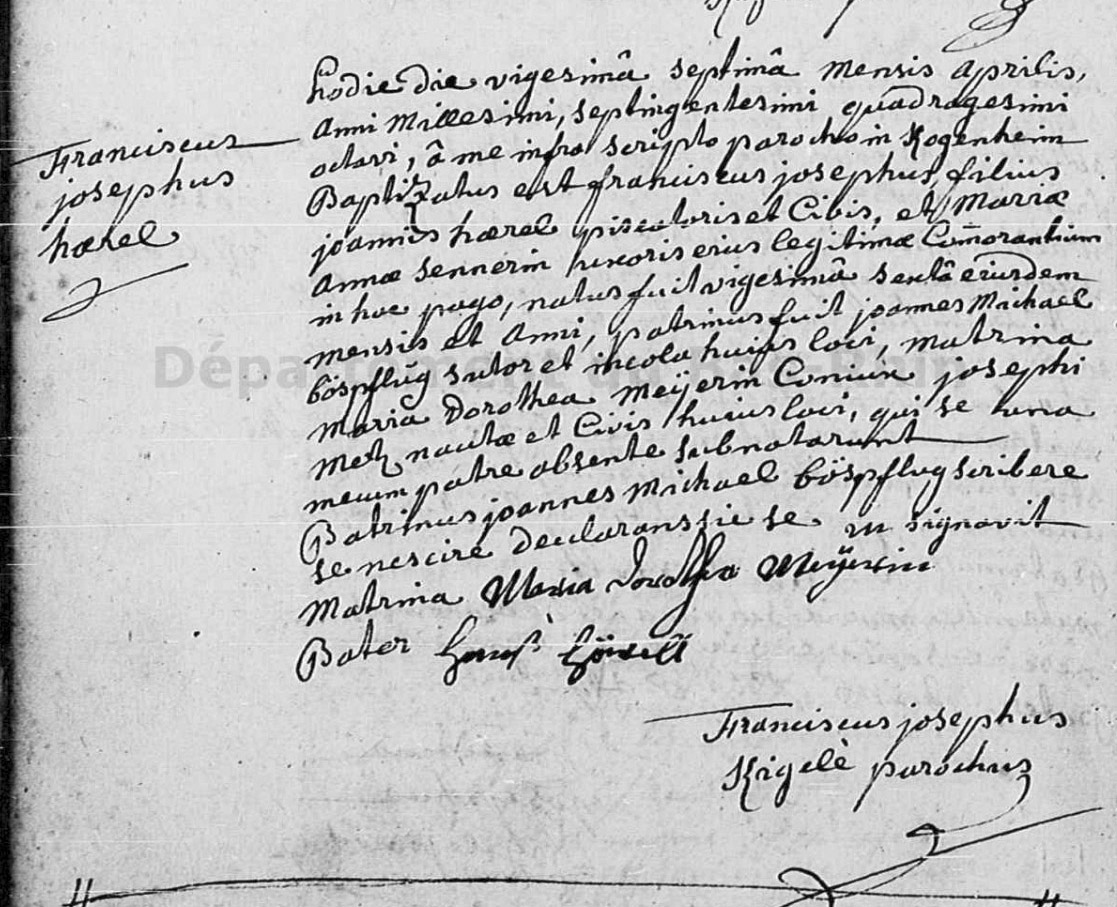 Franciscus
josephus
hærel
hodie die vigesimâ septimâ mensis aprilis,
anni millesimi, septingentesimi quadragesimi
octavi, â me infra scripto parocho in Kogenheim
Baptizatus est franciscus josephus, filius
joannis hærel piscatoris et Civis, et Mariæ
annæ sennerin huxoris eius legitimæ Com̄orantium
in hoc pago, natus fuit vigesimâ sextâ eiusdem
mensis et anni, patrinus fuit joannes Michael
böspflug sutor et incola huius loci, matrina
maria Dorothea meÿerin Coniux josephi
metz nautæ et Civis huius loci, qui se una
mecum patre absente subnotarunt
Patrinus joannes michael böspflug scribere
se nescire declarans sic se m signavit
matrina Maria dorothea Meÿerin
Pater
Franciscus josephus
Kigelè parochus
Département du Bas-Rhin